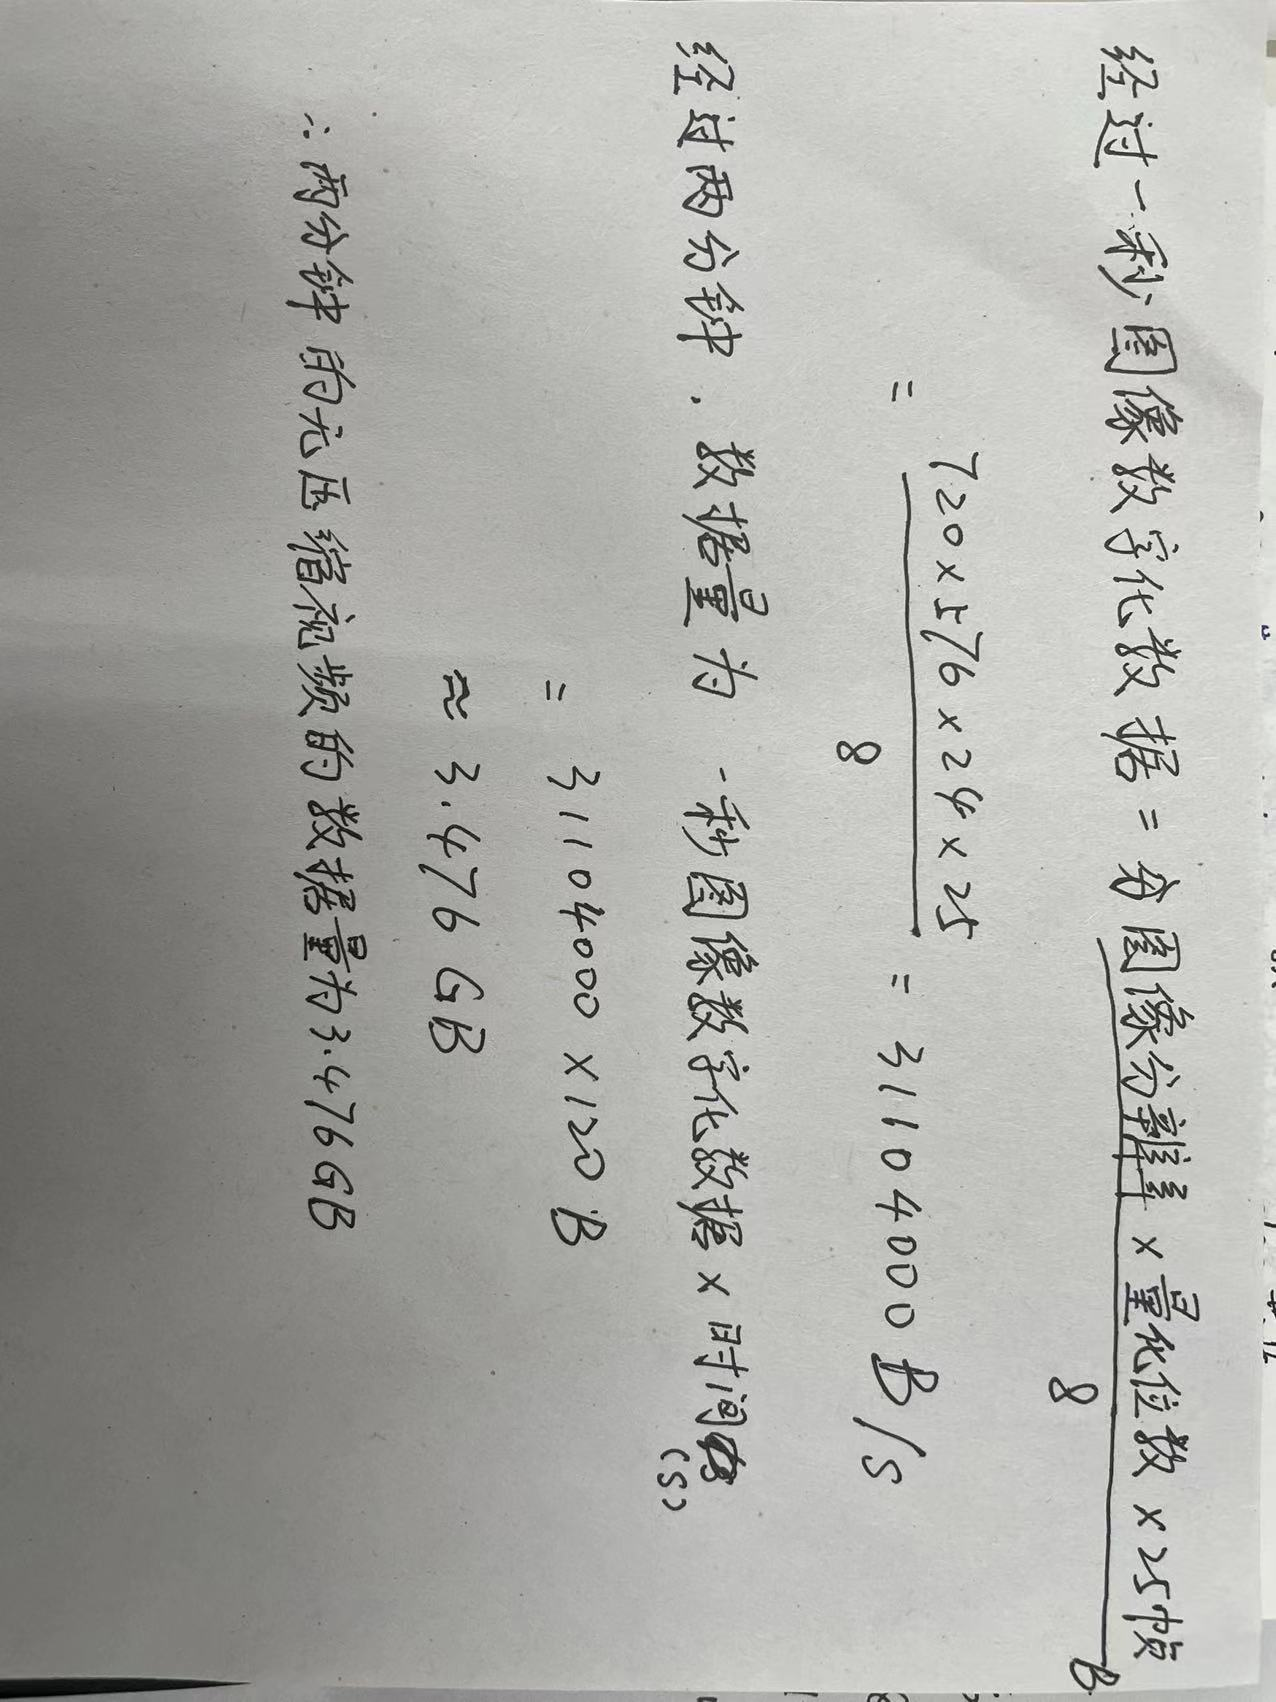 经过一秒图像数字化数据 = 图像分辨率 × 量化位数 × 25帧
8 B
= 720×576×24×25 = 31104000 B/s
8
经过两分钟，数据量为 一秒图像数字化数据 × 时间
(s)
= 31104000 ×120 B
≈ 3.476 GB
∴两分钟的无压缩视频的数据量为3.476GB